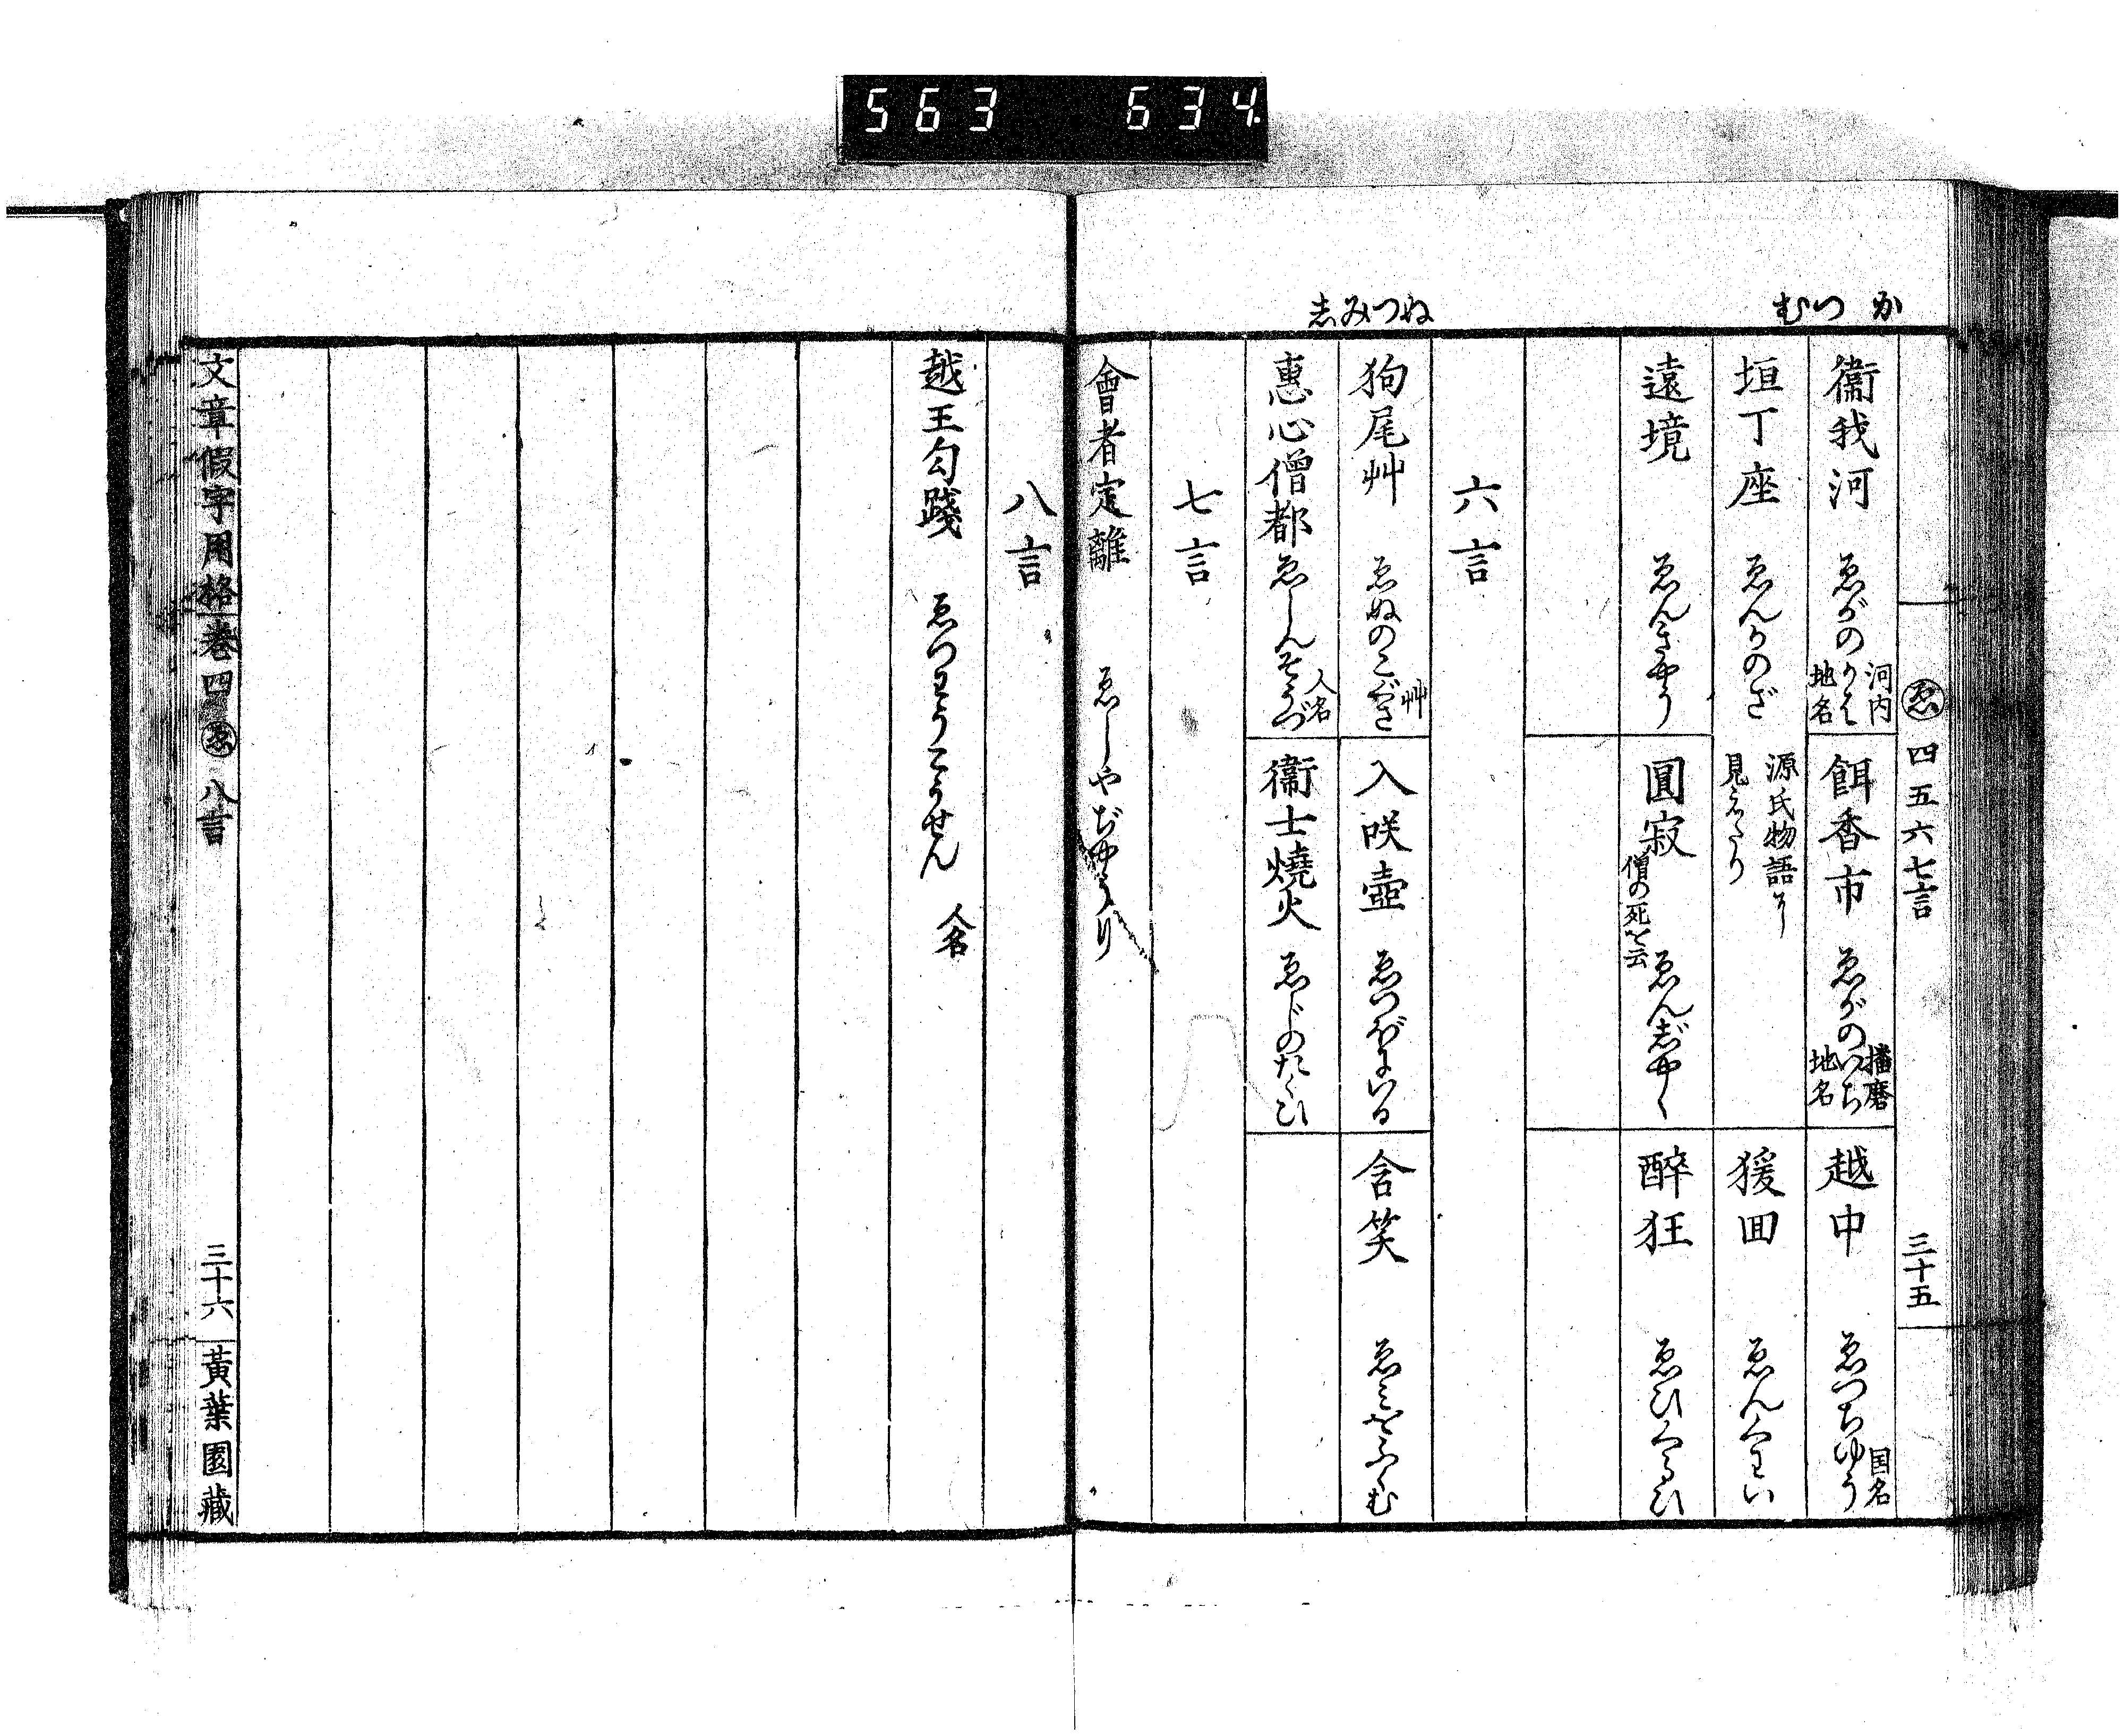 563 634.
かつむ
ゑ四五六七言 三十五
衞我河 ゑがのかは 河内地名
餌香市 ゑがのいち 播磨地名
越中 ゑつちゆう 国名
垣丁座 ゑんかのざ 源氏物語に見えたり
猨囬 ゑんくわい
遠境 ゑんきやう
圓寂 僧の死を云 ゑんじやく
醉狂 ゑひくるひ
六言
ぬつみし
狗尾艸 ゑぬのこぐさ 艸
入咲壺 ゑつぼにいる
含笑 ゑミをふくむ
惠心僧都 ゑしんそうづ 人名
衞士燒火 ゑじのたくひ
七言
會者定離 ゑしやぢやうり
八言
越王勾踐 ゑつわうこうせん 人名
文章假字用格 巻四 ゑ 八言 三十六 黃葉園藏